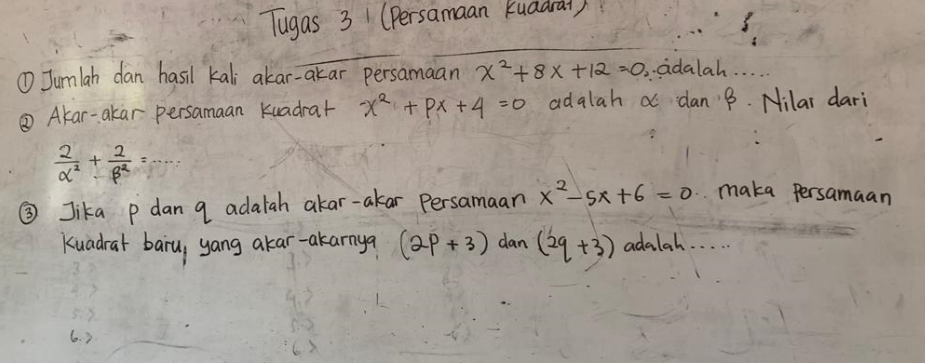 Tugas 3 (Persamaan Kuadrat)
① Jumlah dan hasil kali akar-akar persamaan x²+8x+12=0, adalah.....
② Akar-akar persamaan Kuadrat x² + px + 4 = 0 adalah α dan β. Nilai dari
2/α² + 2/β² = .....
③ Jika p dan q adalah akar-akar Persamaan x²-5x+6 = 0. maka Persamaan
Kuadrat baru, yang akar-akarnya (2p+3) dan (2q+3) adalah.....
6.>